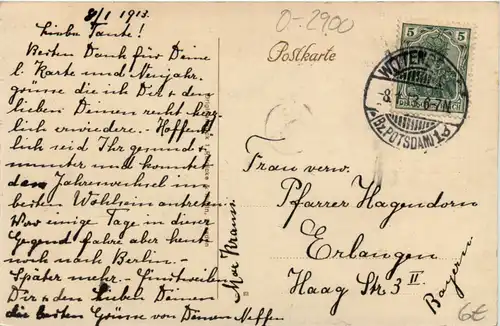 8/1 1913.
Liebe Tante!
Besten Dank für Deine
l. Karte und Neujahr-
grüsse die ich Dir & den
lieben Deinen recht herz-
lich erwiedere. - Hoffent-
lich seid Ihr gesund &
munter und konntet
den Jahreswechsel im
besten Wohlsein antreten.
War einige Tage in dieser
Gegend fahre aber heut
noch nach Berlin. -
Später mehr. - Einstweilen
Dir & den lieben Deinen
die besten Grüsse von Deinem Neffen
0-2900
Postkarte
5 5
(BZ. POTSDAM) 1
Frau verw.
Pfarrer Hagendorn
Erlangen
Haag Str. 3 II
Bayern
6€